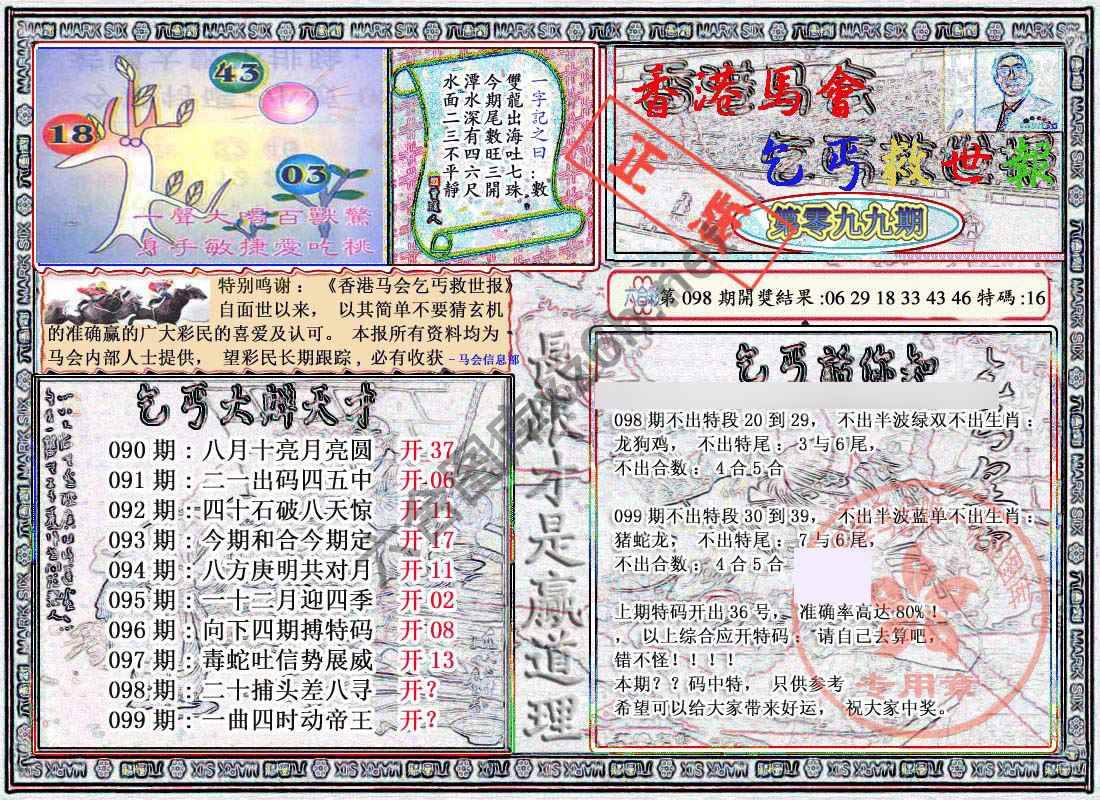 MARK SIX
43
18
03
一聲大喝百獸驚
身手敏捷愛吃桃
一字記之曰:數
雙龍出海吐七珠
今期尾數旺三開
潭水深有四六尺
水面二三不平靜
香港馬會
乞丐救世報
第零九九期
正版
特别鸣谢：《香港马会乞丐救世报》
自面世以来， 以其简单不要猜玄机
的准确赢的广大彩民的喜爱及认可。 本报所有资料均为
马会内部人士提供， 望彩民长期跟踪，必有收获 -马会信息部
第 098 期開獎結果 :06 29 18 33 43 46 特碼 :16
090 期：八月十亮月亮圆 开 37
091 期：二一出码四五中 开 06
092 期：四十石破八天惊 开 11
093 期：今期和合今期定 开 17
094 期：八方庚明共对月 开 11
095 期：一十二月迎四季 开 02
096 期：向下四期搏特码 开 08
097 期：毒蛇吐信势展威 开 13
098 期：二十捕头差八寻 开?
099 期：一曲四时动帝王 开?
長跟才是赢道理
098 期不出特段 20 到 29， 不出半波绿双不出生肖：
龙狗鸡， 不出特尾： 3 与 6 尾，
不出合数： 4 合 5 合
099 期不出特段 30 到 39， 不出半波蓝单不出生肖：
猪蛇龙， 不出特尾： 7 与 6 尾，
不出合数： 4 合 5 合
上期特码开出 36 号， 准确率高达 80%！
， 以上综合应开特码： 请自己去算吧，
错不怪！！！！
本期？？码中特， 只供参考
希望可以给大家带来好运， 祝大家中奖。
专用章